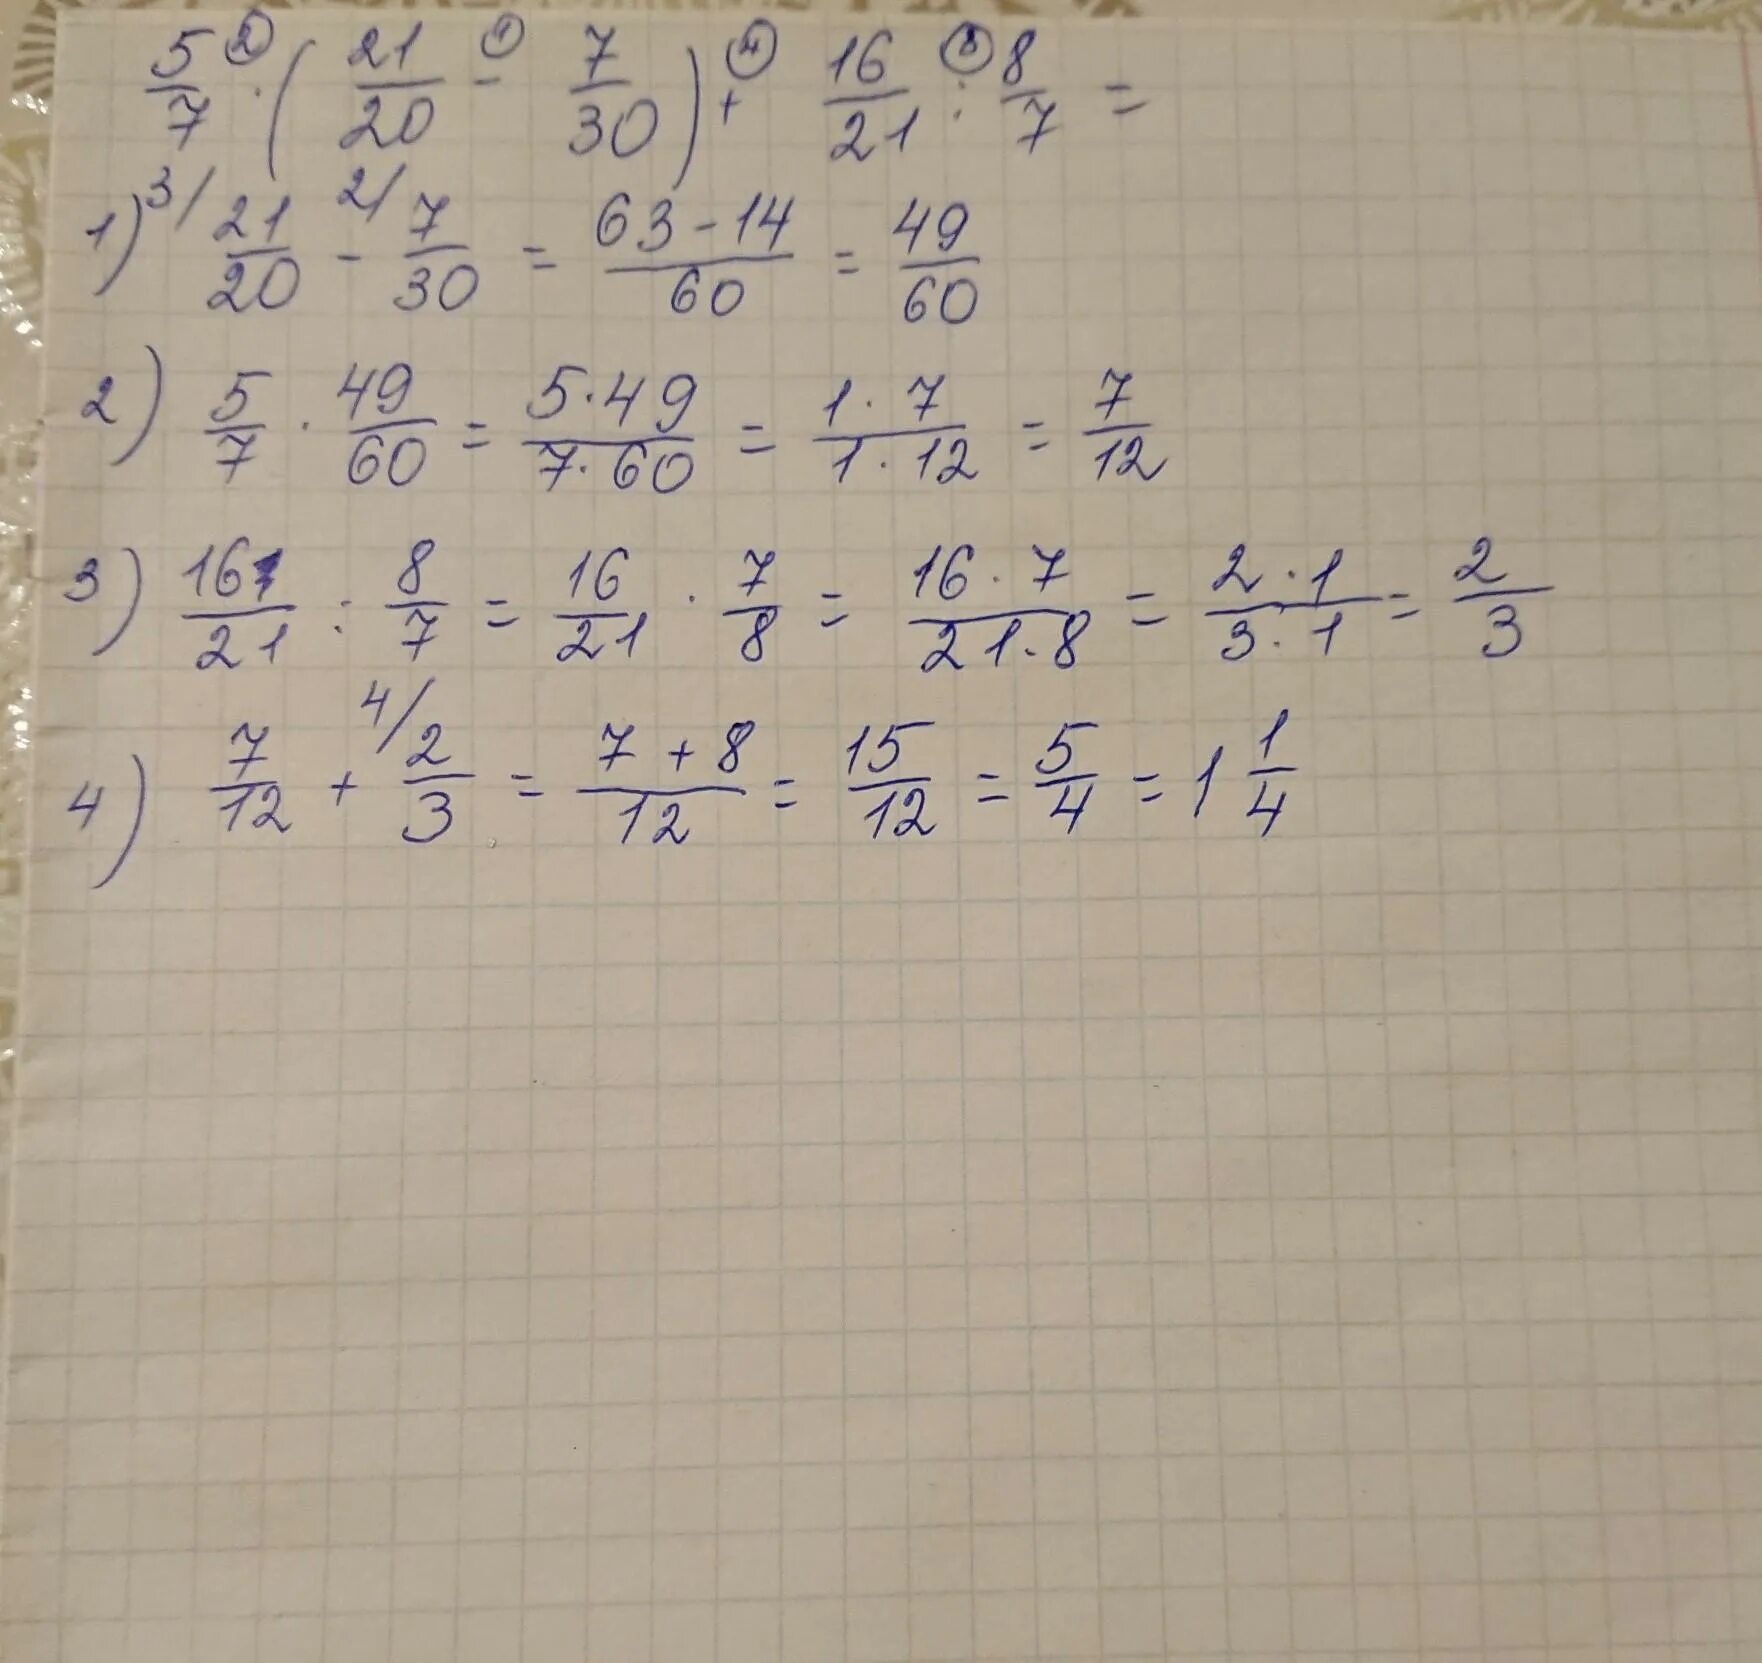 5/7 ② · ( 21/20 ① - 7/30 ) ④ + 16/21 ③ : 8/7 =
1) 3/ 21/20 - 2/ 7/30 = 63-14/60 = 49/60
2) 5/7 · 49/60 = 5·49/7·60 = 1·7/1·12 = 7/12
3) 16/21 : 8/7 = 16/21 · 7/8 = 16·7/21·8 = 2·1/3·1 = 2/3
4) 7/12 + 4/ 2/3 = 7+8/12 = 15/12 = 5/4 = 1 1/4